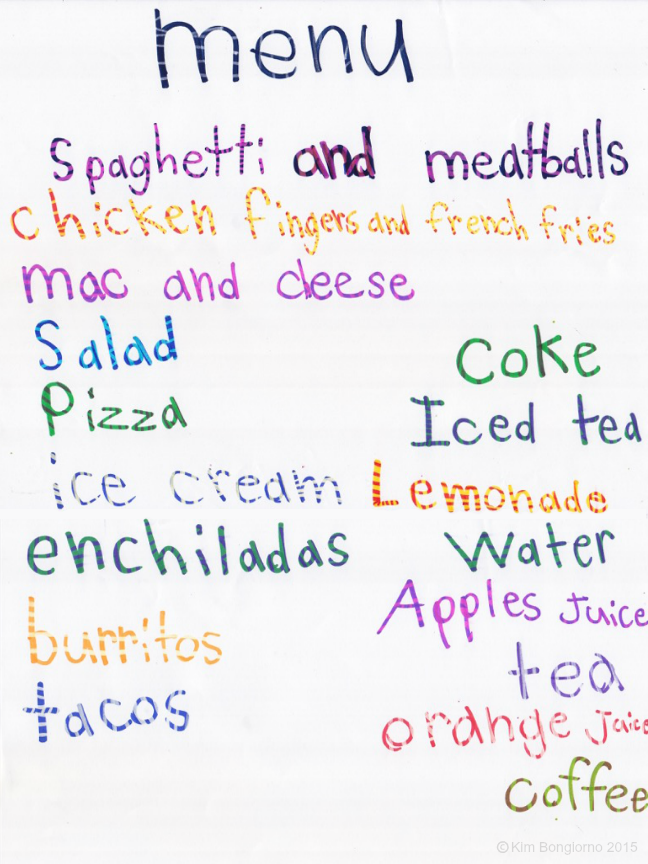 menu
Spaghetti and meatballs
chicken fingers and french fries
mac and cleese
Salad
Pizza
ice cream
enchiladas
burritos
tacos
Coke
Iced tea
Lemonade
Water
Apples Juice
tea
orange Juice
coffee
© Kim Bongiorno 2015